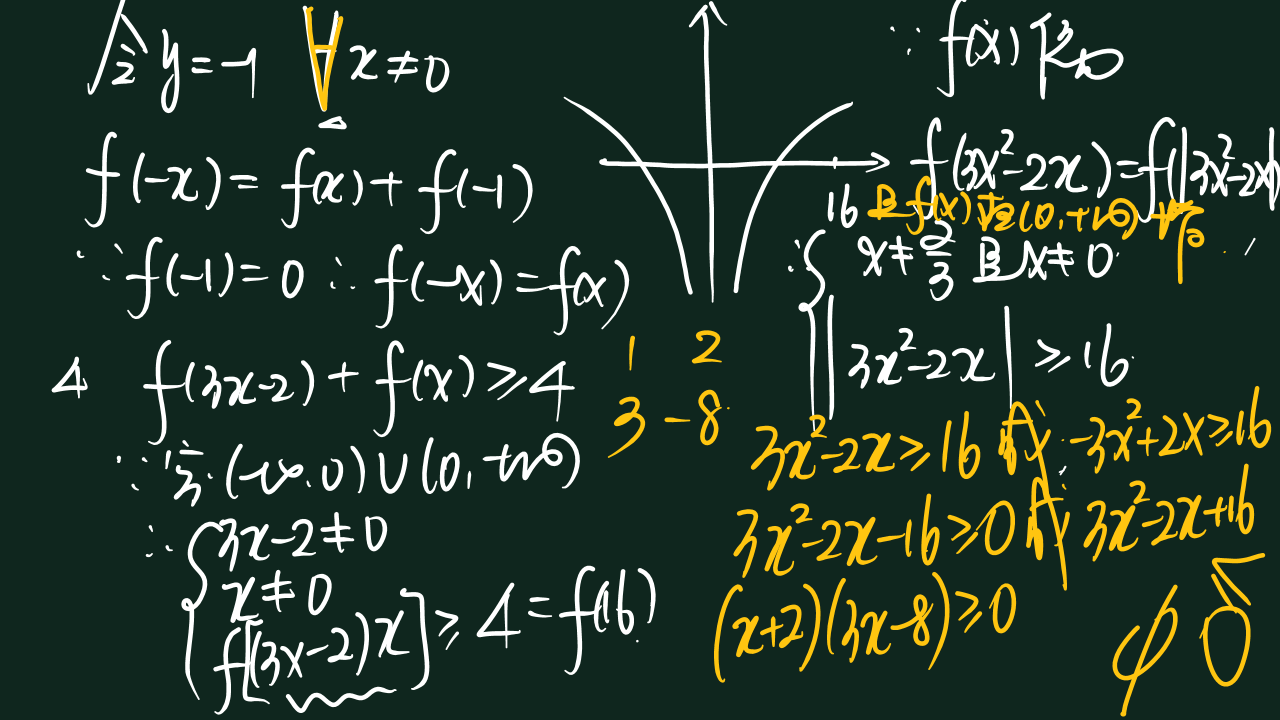 令 y = -1 ∀ x ≠ 0
f(-x) = f(x) + f(-1)
∵ f(-1) = 0 ∴ f(-x) = f(x)
4 f(3x-2) + f(x) ≥ 4
(-∞, 0) ∪ (0, +∞)
∴ { 3x-2 ≠ 0
x ≠ 0
f[(3x-2)x] ≥ 4 = f(16)
16
1 2
3 -8
∵ f(x)
f(3x²-2x) = f(|3x²-2x|)
且 f(x) 在 (0, +∞)
∴ { x ≠ 2/3 且 x ≠ 0
|3x²-2x| ≥ 16
3x²-2x ≥ 16 或 -3x²+2x ≥ 16
3x²-2x-16 ≥ 0 或 3x²-2x+16
(x+2)(3x-8) ≥ 0
φ